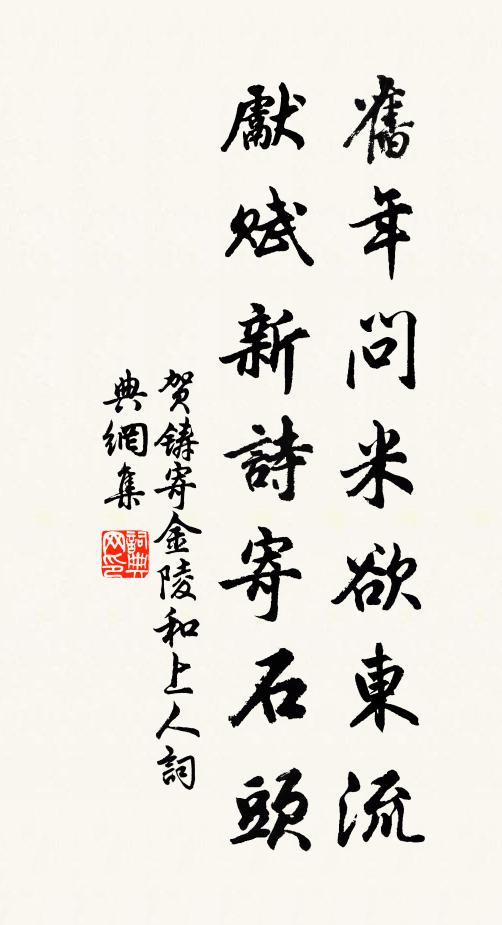 舊年問米欲東流
獻賦新詩寄石頭
賀鑄寄金陵和上人詞
典網集
詞典网印